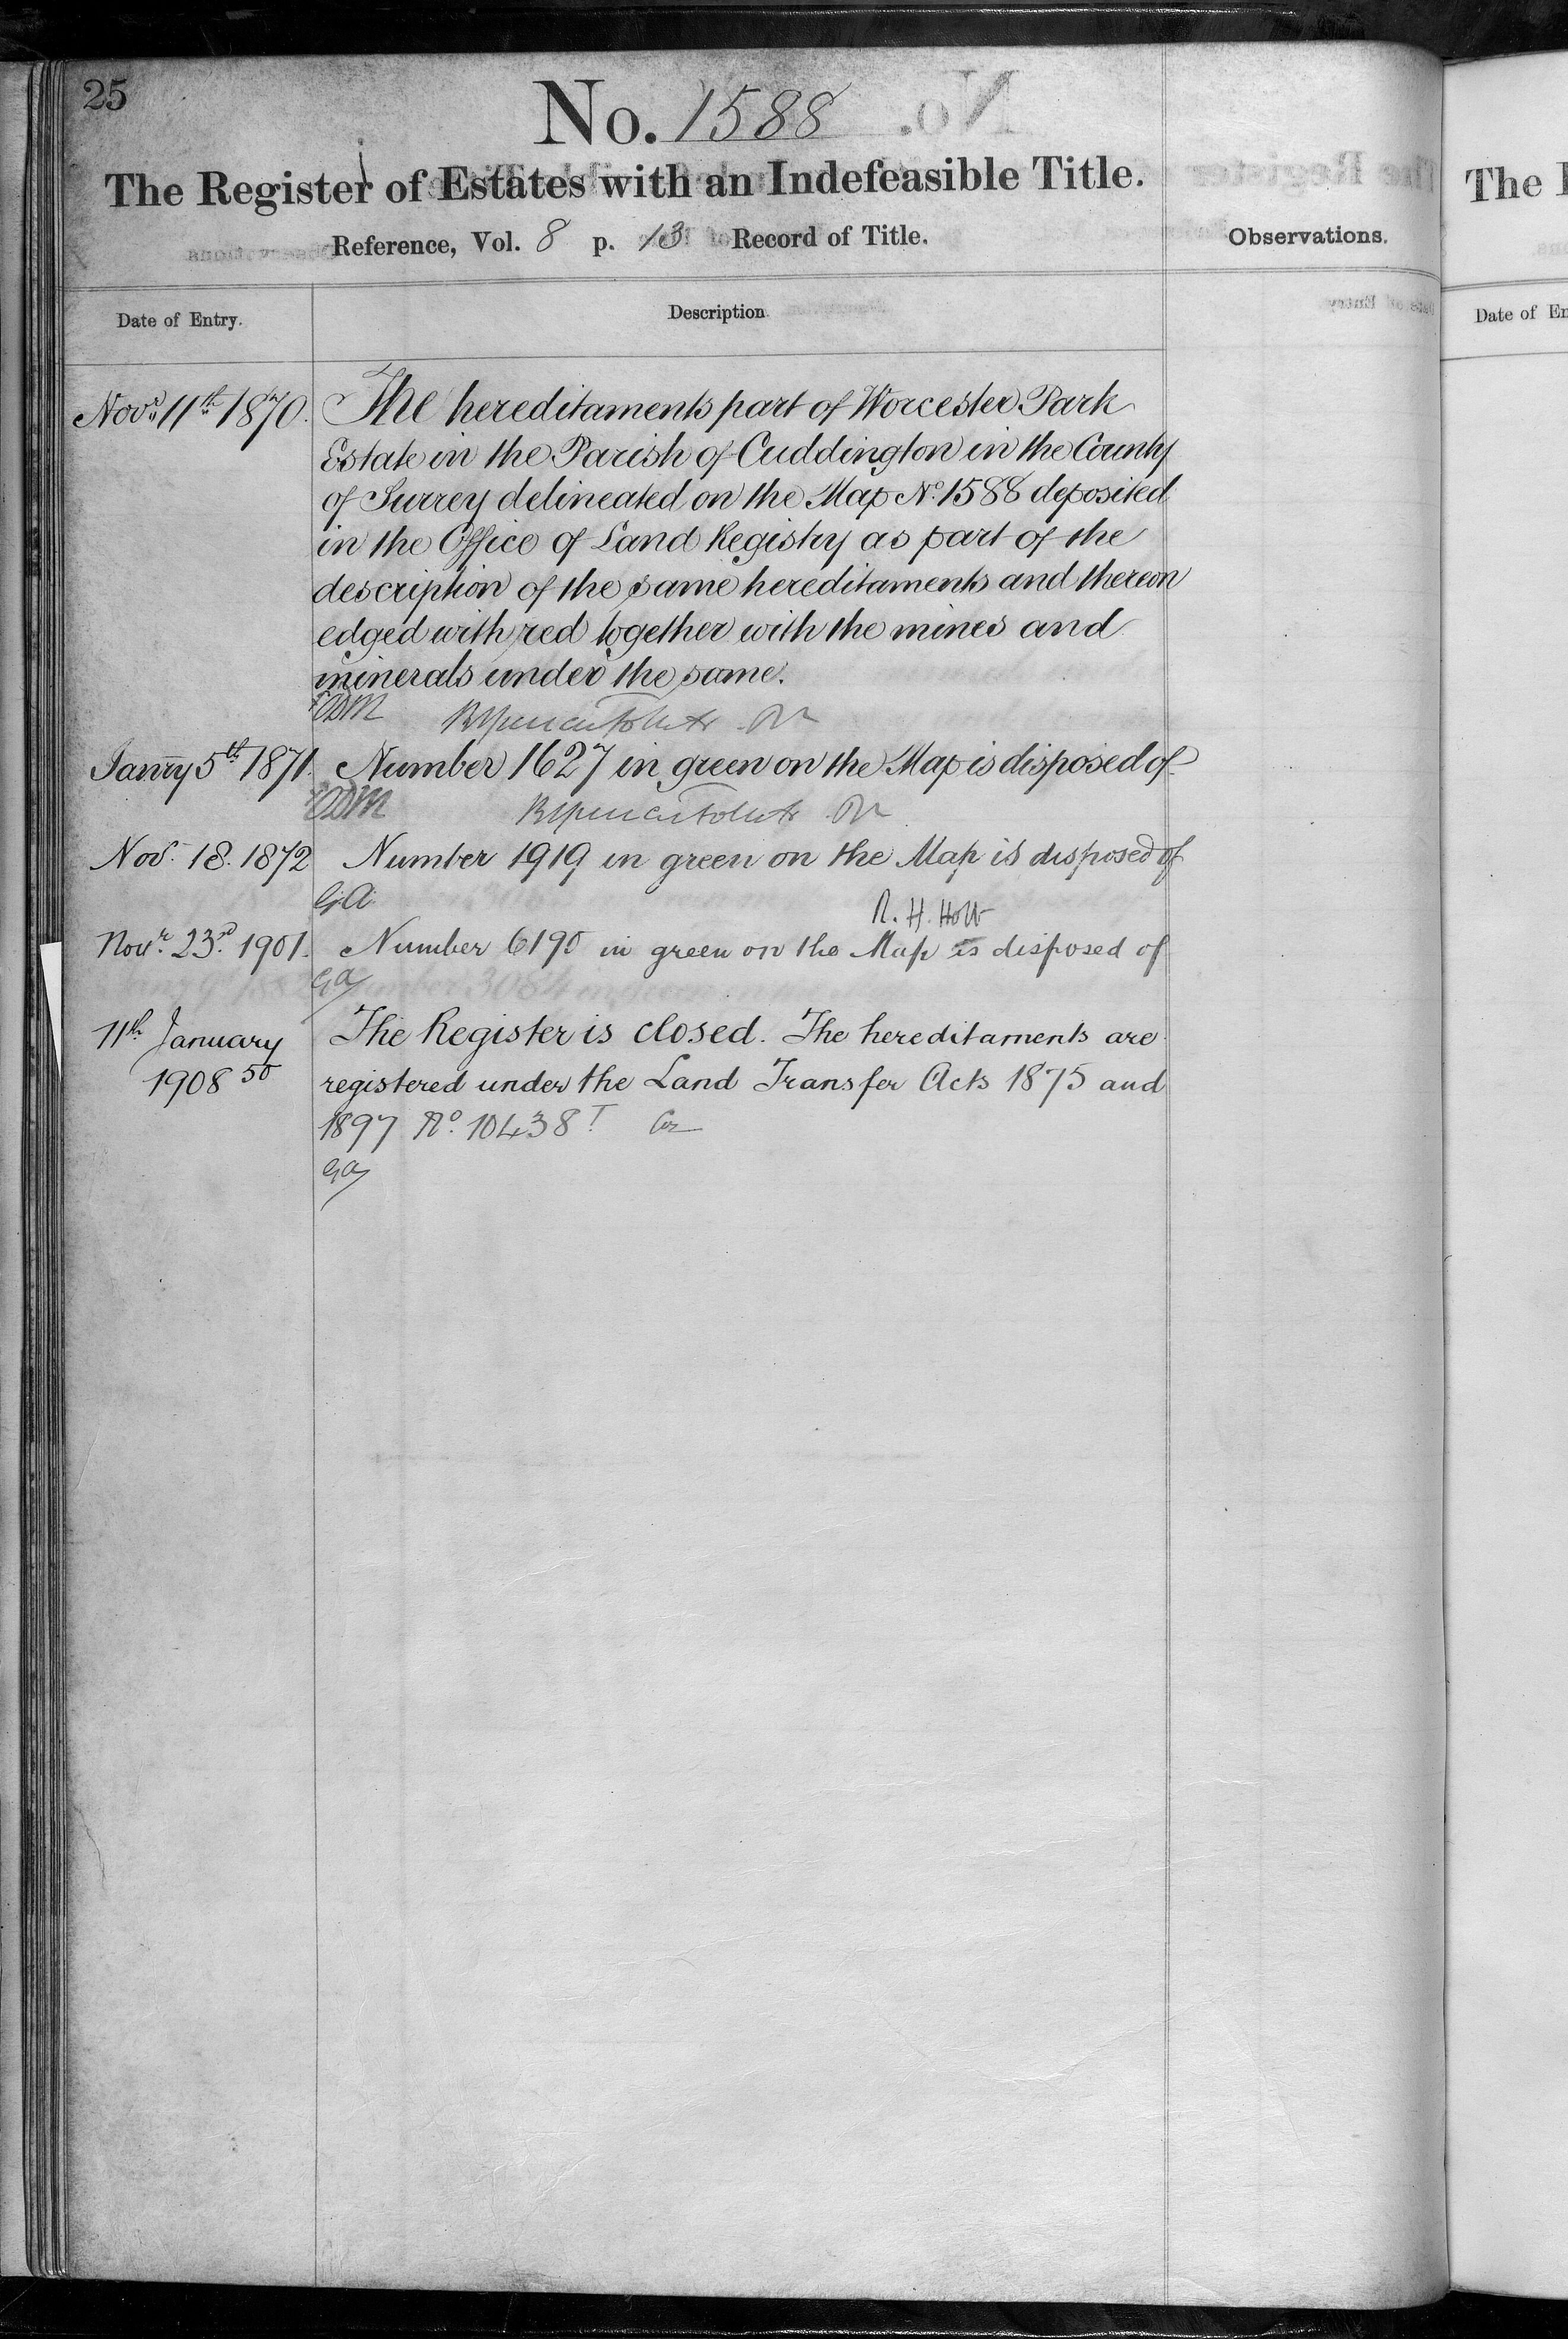 25
No. 1588
The Register of Estates with an Indefeasible Title.
Reference, Vol. 8 p. 13 Record of Title.
Observations.
Date of Entry.
Description
Novr. 11th 1870. The hereditaments part of Worcester Park
Estate in the Parish of Cuddington in the County
of Surrey delineated on the Map No. 1588 deposited
in the Office of Land Registry as part of the
description of the same hereditaments and thereon
edged with red together with the mines and
minerals under the same.
Janry 5th 1871. Number 1627 in green on the Map is disposed of
Nov. 18. 1872 Number 1919 in green on the Map is disposed of
G.A.
R. H. Holt
Novr. 23rd. 1901. Number 6190 in green on the Map is disposed of
GA
11th January The Register is closed. The hereditaments are
1908 50 registered under the Land Transfer Acts 1875 and
1897 No. 10438 T
GA
The
Date of En